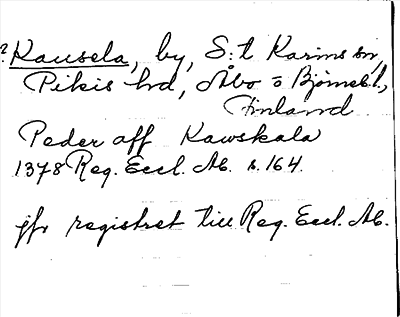 ? Kausela, by, S:t Karins sn,
Pikis hd, Åbo o Björneb. l.,
Finland
Peder aff Kawskala
1378 Reg. Eccl. Ab. s. 164.
jfr registret till Reg. Eccl. Ab.